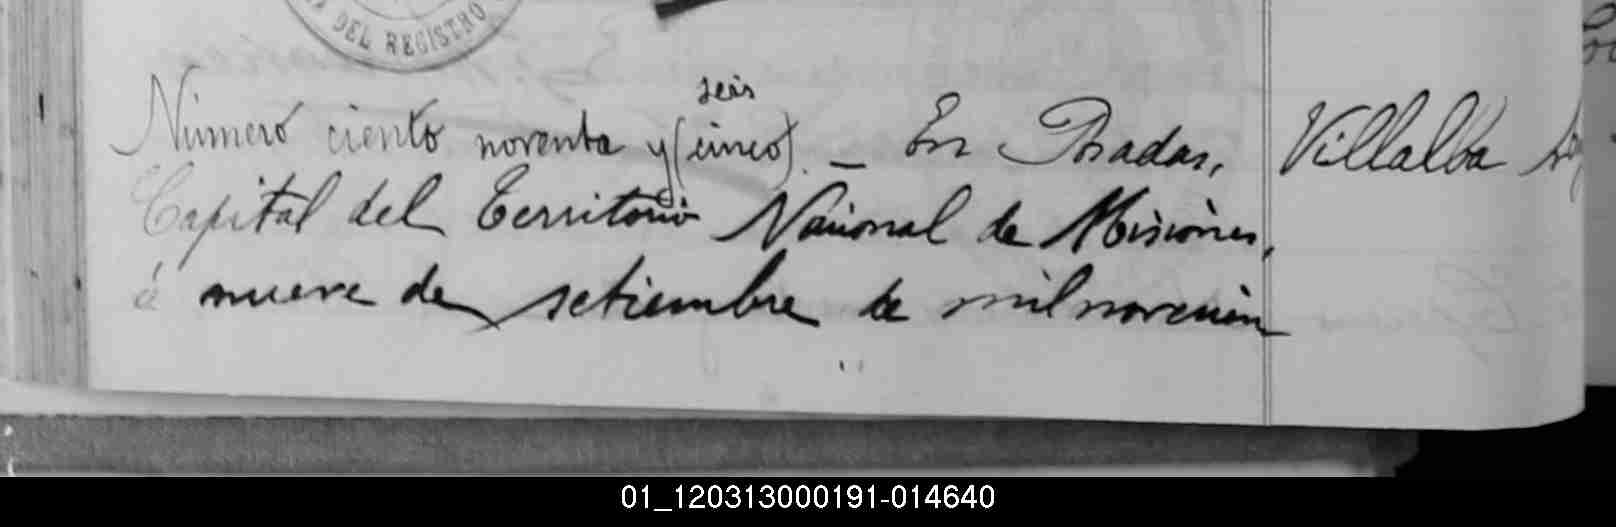 DEL REGISTRO
seis
Número ciento noventa y (cinco). — En Posadas,
Capital del Territorio Nacional de Misiones,
á nueve de setiembre de mil novecien
Villalba
01_120313000191-014640